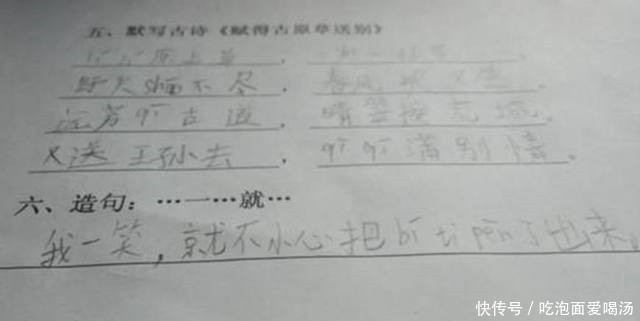 五、默写古诗《赋得古原草送别》
野火 shāo 不尽,春风吹又生。
远芳 qīn 古道,晴翠接荒城。
又送王孙去,qī qī 满别情。
六、造句：…一…就…
我一笑，就不小心把 bí tì pēn 了出来。
快传号 / 吃泡面爱喝汤